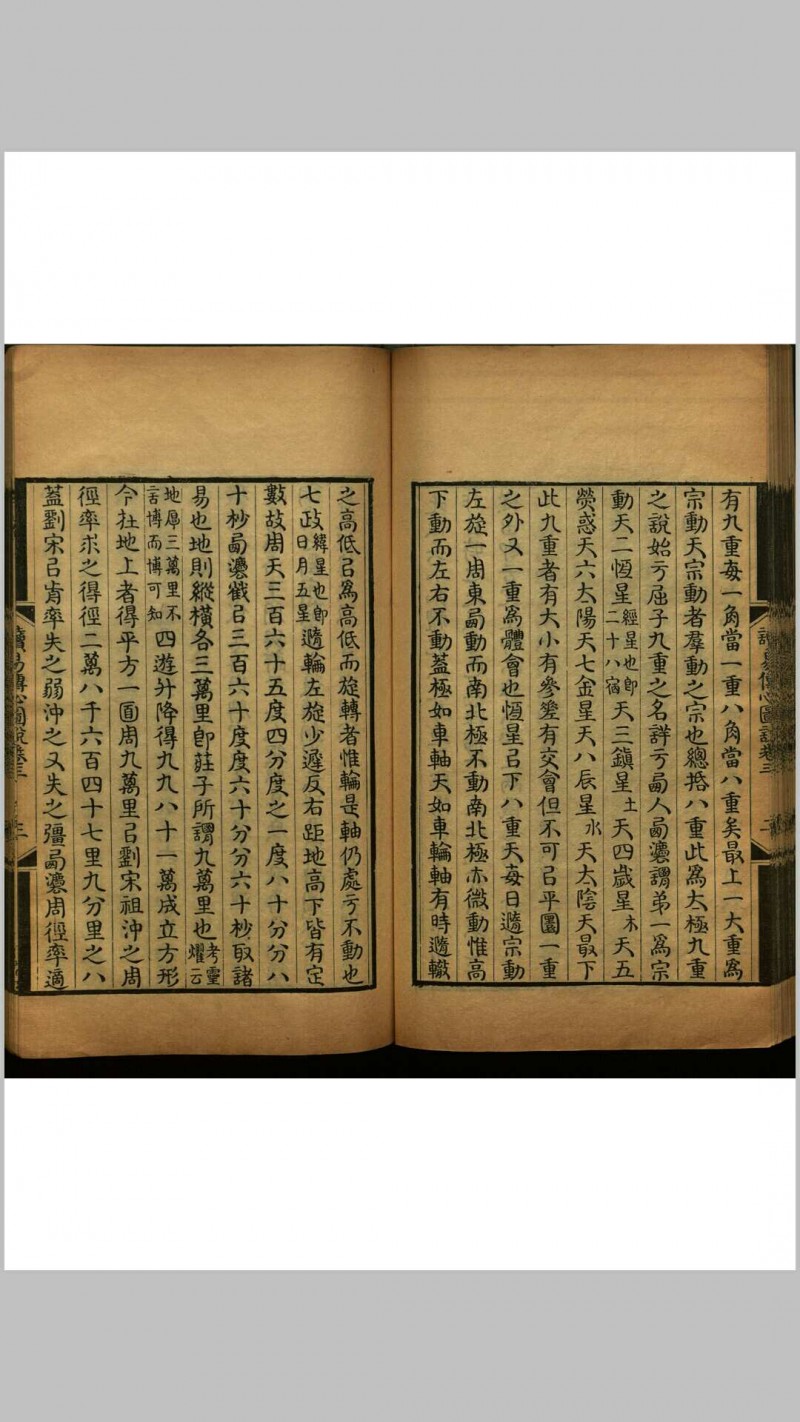 有九重每一角當一重八角當八重矣最上一大重爲
宗動天宗動者羣動之宗也總揽八重此爲太極九重
之說始亏屈子九重之名詳亏㢴人㢴灋謂弟一爲宗
動天二恆星經星也卽二十八宿天三鎮星土天四歲星木天五
熒惑天六太陽天七金星天八辰星水天太陰天最下
此九重者有大小有參差有交會但不可㠯平圜一重
之外又一重爲體會也恆星㠯下八重天每日隨宗動
左旋一周東㢴動而南北極不動南北極亦微動惟高
下動而左右不動蓋極如車軸天如車輪軸有時隨轍
之高低㠯爲高低而旋轉者惟輪是軸仍處亏不動也
七政緯星也卽日月五星隨輪左旋少遲反右距地高下皆有定
數故周天三百六十五度四分度之一度八十分分八
十秒㢴灋截㠯三百六十度度六十分分六十秒取諸
易也地則縱橫各三萬里卽莊子所謂九萬里也考靈燿云
地厚三萬里不言博而博可知四遊升降得九九八十一萬成立方形
今在地上者得平方一面周九萬里㠯劉宋祖沖之周
徑率求之得徑二萬八千六百四十七里九分里之八
蓋劉宋㠯耑率失之弱沖之又失之彊㢴灋周徑率適
讀易傳心圖說卷三
三